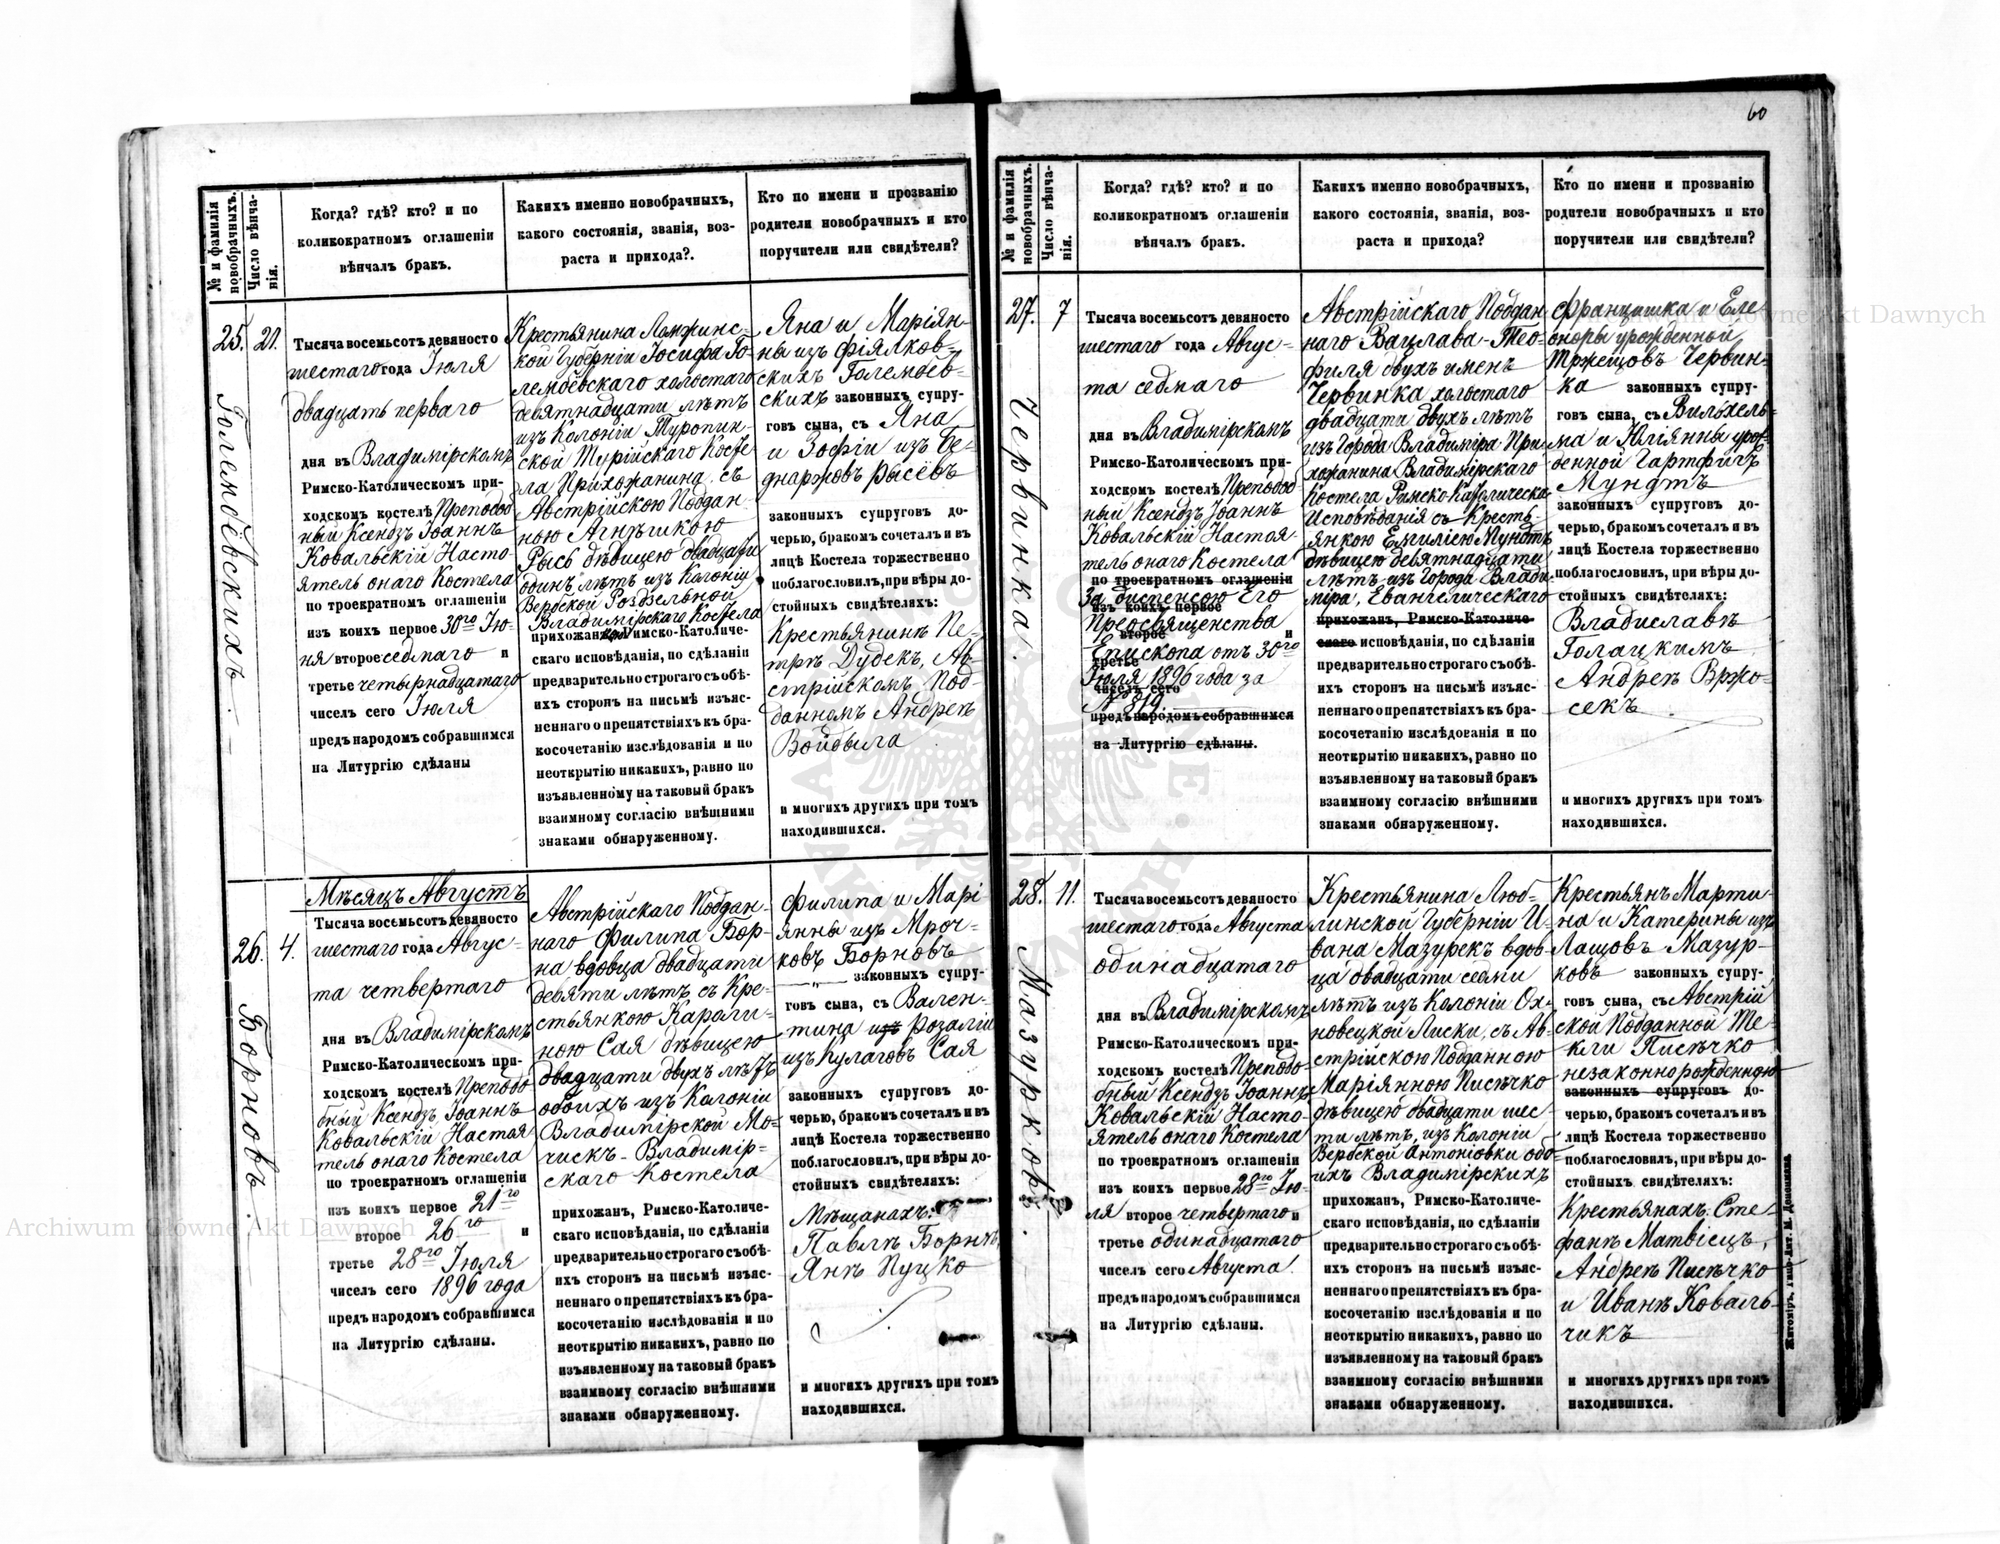 60
№ и фамилія новобрачныхъ.
Число вѣнчанія.
Когда? гдѣ? кто? и по
коликократномъ оглашеніи
вѣнчалъ бракъ.
Какихъ именно новобрачныхъ,
какого состоянія, званія, воз-
раста и прихода?.
Кто по имени и прозванію
родители новобрачныхъ и кто
поручители или свидѣтели?
25.
21.
Голембёвскихъ.
Тысяча восемьсотъ девяносто
шестаго года Іюля
двадцать перваго
дня въ Владимірскомъ
Римско-Католическомъ при-
ходскомъ костелѣ Преподоб
ный Ксендзъ Іоаннъ
Ковальскій Насто-
ятель онаго Костела
по троекратномъ оглашеніи
изъ коихъ первое 30го Ію-
ня второе седмаго и
третье четырнадцатаго
чиселъ сего Іюля
предъ народомъ собравшимся
на Литургію сдѣланы
Крестьянина Ломжинс-
кой Губерніи Іосифа Го-
лембёвскаго холостаго
девятнадцати лѣтъ
изъ Колоніи Туропин-
ской Турійскаго Косте
ла Прихожанина съ
Австрійскою Поддан-
ною Агнѣшкою
Рысь дѣвицею двадцати
одинъ лѣтъ изъ Колоніи
Вербской Роздзельной
Владимірскаго Костела
прихожан Римско-Католиче-
скаго исповѣданія, по сдѣланіи
предварительно строгаго съ обѣ-
ихъ сторонъ на письмѣ изъяс-
неннаго о препятствіяхъ къ бра-
косочетанію изслѣдованія и по
неоткрытію никакихъ, равно по
изъявленному на таковый бракъ
взаимному согласію внѣшними
знаками обнаруженному.
Яна и Маріян-
ны изъ Фіялков-
скихъ Голембёв-
скихъ законныхъ супру-
говъ сына, съ Яна
и Зофіи изъ Бе-
днаржовъ Рысевъ
законныхъ супруговъ до-
черью, бракомъ сочеталъ и въ
лицѣ Костела торжественно
поблагословилъ, при вѣры до-
стойныхъ свидѣтеляхъ:
Крестьянинѣ Пе-
трѣ Дудекъ, Ав-
стрійскомъ Под-
данномъ Андреѣ
Войдыла
и многихъ другихъ при томъ
находившихся.
26.
4.
Борновъ.
Мѣсяцъ Августъ
Тысяча восемьсотъ девяносто
шестаго года Авгус-
та четвертаго
дня въ Владимірскомъ
Римско-Католическомъ при-
ходскомъ костелѣ Преподо
бный Ксендзъ Іоаннъ
Ковальскій Настоя
тель онаго Костела
по троекратномъ оглашеніи
изъ коихъ первое 21го
второе 26го и
третье 28го Іюля
чиселъ сего 1896 года
предъ народомъ собравшимся
на Литургію сдѣланы.
Австрійскаго Поддан-
наго Филипа Бор-
на вдовца двадцати
девяти лѣтъ съ Кре-
стьянкою Кароли-
ною Сая дѣвицею
двадцати двухъ лѣтъ
обоихъ изъ Колоніи
Владимірской Мо-
чискъ - Владимір-
скаго Костела
прихожан, Римско-Католиче-
скаго исповѣданія, по сдѣланіи
предварительно строгаго съ обѣ-
ихъ сторонъ на письмѣ изъяс-
неннаго о препятствіяхъ къ бра-
косочетанію изслѣдованія и по
неоткрытію никакихъ, равно по
изъявленному на таковый бракъ
взаимному согласію внѣшними
знаками обнаруженному.
Филипа и Марі-
янны изъ Мроч-
ковъ Борновъ
законныхъ супру-
говъ сына, съ Вален-
тина изъ Розаліи
изъ Кулаговъ Сая
законныхъ супруговъ до-
черью, бракомъ сочеталъ и въ
лицѣ Костела торжественно
поблагословилъ, при вѣры до-
стойныхъ свидѣтеляхъ:
Мѣщанахъ:
Павлѣ Борнъ,
Янѣ Пуцко
и многихъ другихъ при томъ
находившихся.
№ и фамилія новобрачныхъ.
Число вѣнчанія.
Когда? гдѣ? кто? и по
коликократномъ оглашеніи
вѣнчалъ бракъ.
Какихъ именно новобрачныхъ,
какого состоянія, званія, воз-
раста и прихода?
Кто по имени и прозванію
родители новобрачныхъ и кто
поручители или свидѣтели?
27.
7
Червинка.
Тысяча восемьсотъ девяносто
шестаго года Авгус-
та седмаго
дня въ Владимірскомъ
Римско-Католическомъ при-
ходскомъ костелѣ Преподоб
ный Ксендзъ Іоаннъ
Ковальскій Настоя-
тель онаго Костела
по троекратномъ оглашеніи
За диспенсою Его
изъ коихъ первое
Преосвященства
второе и
Епископа отъ 30го
третье
Іюля 1896 года за
чиселъ сего
№ 819.
предъ народомъ собравшимся
на Литургію сдѣланы.
Австрійскаго Поддан
наго Вацлава-Тео-
филя двухъ именъ
Червинка холостаго
двадцати двухъ лѣтъ
изъ Города Владиміра При-
хожанина Владимірскаго
Костела Римско-Католическа-
Исповѣданія съ Кресть-
янкою Емиліею Мундтъ
дѣвицею девятнадцати
лѣтъ изъ Города Влади-
міра, Евангелическаго
прихожан, Римско-Католиче-
скаго исповѣданія, по сдѣланіи
предварительно строгаго съ обѣ-
ихъ сторонъ на письмѣ изъяс-
неннаго о препятствіяхъ къ бра-
косочетанію изслѣдованія и по
неоткрытію никакихъ, равно по
изъявленному на таковый бракъ
взаимному согласію внѣшними
знаками обнаруженному.
Францишка и Еле
оноры урожденной
Тржещовъ Червин-
ка законныхъ супру-
говъ сына, съ Вильхель-
ма и Юліянны урож-
денной Гартфигъ
Мундтъ
законныхъ супруговъ до-
черью, бракомъ сочеталъ и въ
лицѣ Костела торжественно
поблагословилъ, при вѣры до-
стойныхъ свидѣтеляхъ:
Владиславѣ
Голацкимъ,
Андреѣ Вржо-
секъ
и многихъ другихъ при томъ
находившихся.
28.
11.
Мазурковъ.
Тысяча восемьсотъ девяносто
шестаго года Августа
одинадцатаго
дня въ Владимірскомъ
Римско-Католическомъ при-
ходскомъ костелѣ Преподо-
бный Ксендзъ Іоаннъ
Ковальскій Насто-
ятель онаго Костела
по троекратномъ оглашеніи
изъ коихъ первое 28го Ію-
ля второе четвертаго и
третье одинадцатаго
чиселъ сего Августа
предъ народомъ собравшимся
на Литургію сдѣланы.
Крестьянина Люб-
линской Губерніи И-
вана Мазурекъ вдов-
ца двадцати семи
лѣтъ изъ Колоніи Ох-
новецкой Лиски, съ Ав-
стрійскою Подданною
Маріянною Писѣчко
дѣвицею двадцати шес-
ти лѣтъ, изъ Колоніи
Вербской Антоніовки обо-
ихъ Владимірскихъ
прихожан, Римско-Католиче-
скаго исповѣданія, по сдѣланіи
предварительно строгаго съ обѣ-
ихъ сторонъ на письмѣ изъяс-
неннаго о препятствіяхъ къ бра-
косочетанію изслѣдованія и по
неоткрытію никакихъ, равно по
изъявленному на таковый бракъ
взаимному согласію внѣшними
знаками обнаруженному.
Крестьянъ Марти-
на и Катерины изъ
Лащовъ Мазур-
ковъ законныхъ супру-
говъ сына, съ Австрій
ской Подданной Те-
кли Писѣчко
незаконнорожденною
законныхъ супруговъ до-
черью, бракомъ сочеталъ и въ
лицѣ Костела торжественно
поблагословилъ, при вѣры до-
стойныхъ свидѣтеляхъ:
Крестьянахъ: Сте-
фанѣ Матвіецъ,
Андреѣ Писѣчко
и Иванѣ Коваль-
чикъ
и многихъ другихъ при томъ
находившихся.
Житоміръ, Типо-Лит. М. Дененмана.
Archiwum Główne Akt Dawnych
Archiwum Główne Akt Dawnych